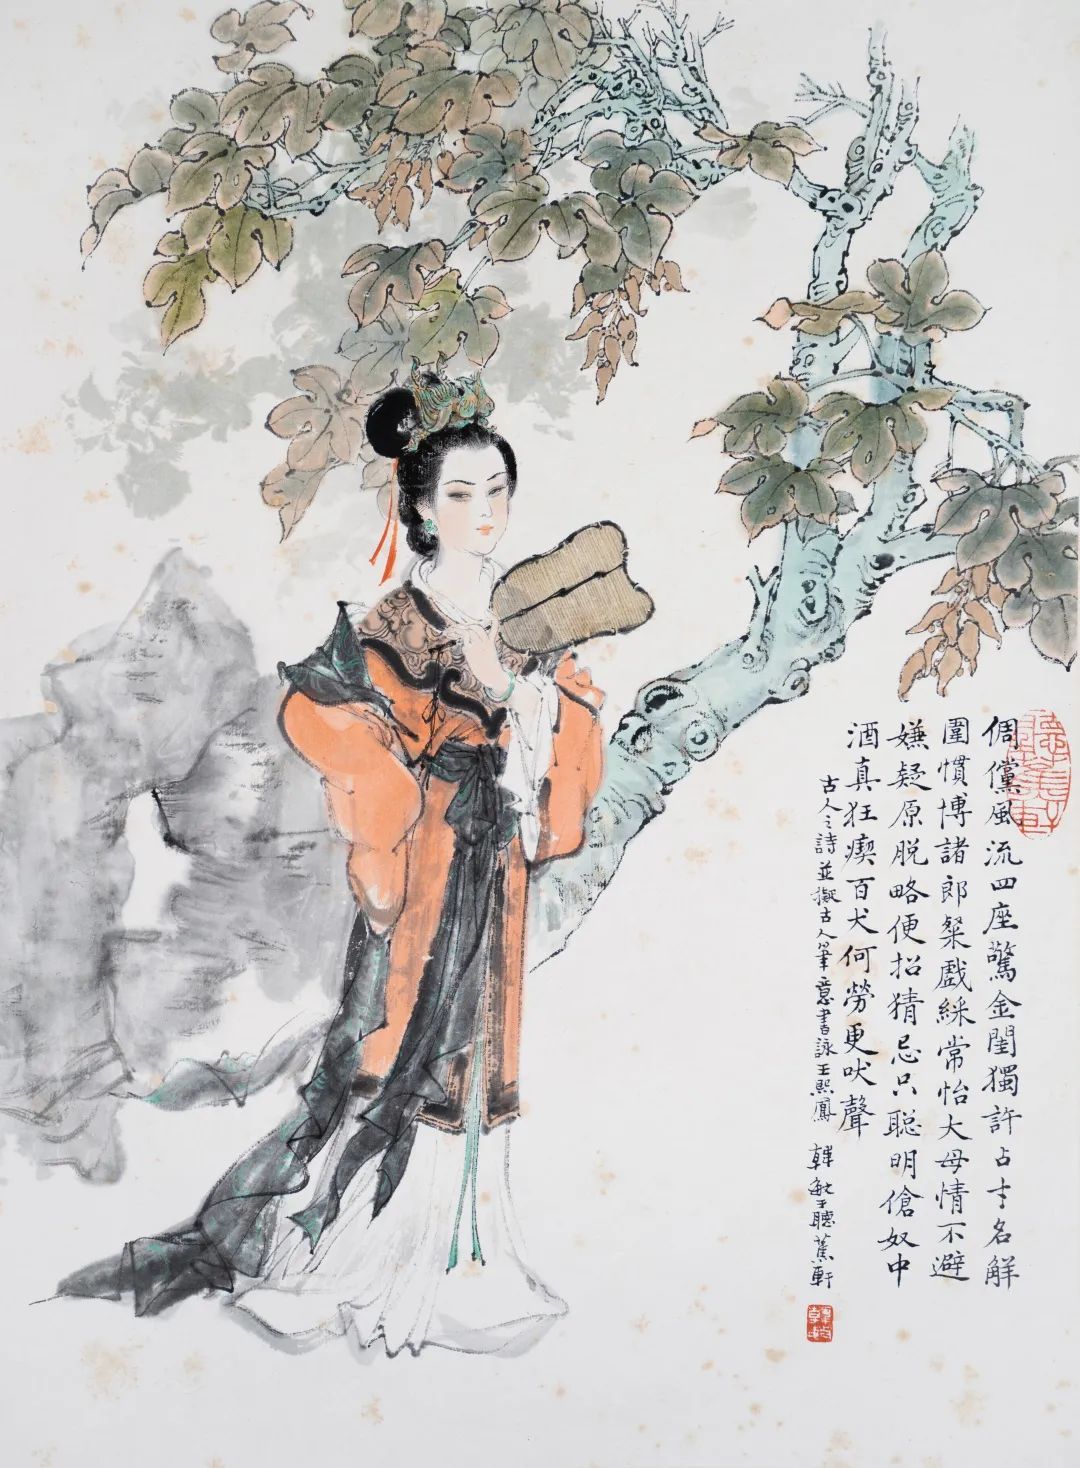 倜儻風流四座驚金閨獨許占才名解
圍慣博諸郎粲戲綵常怡大母情不避
嫌疑原脱略便招猜忌只聰明傖奴中
酒真狂瘈百犬何勞更吠聲
古人之詩並擬古人筆意書詠王熙鳳 韓敏于聽蕉軒